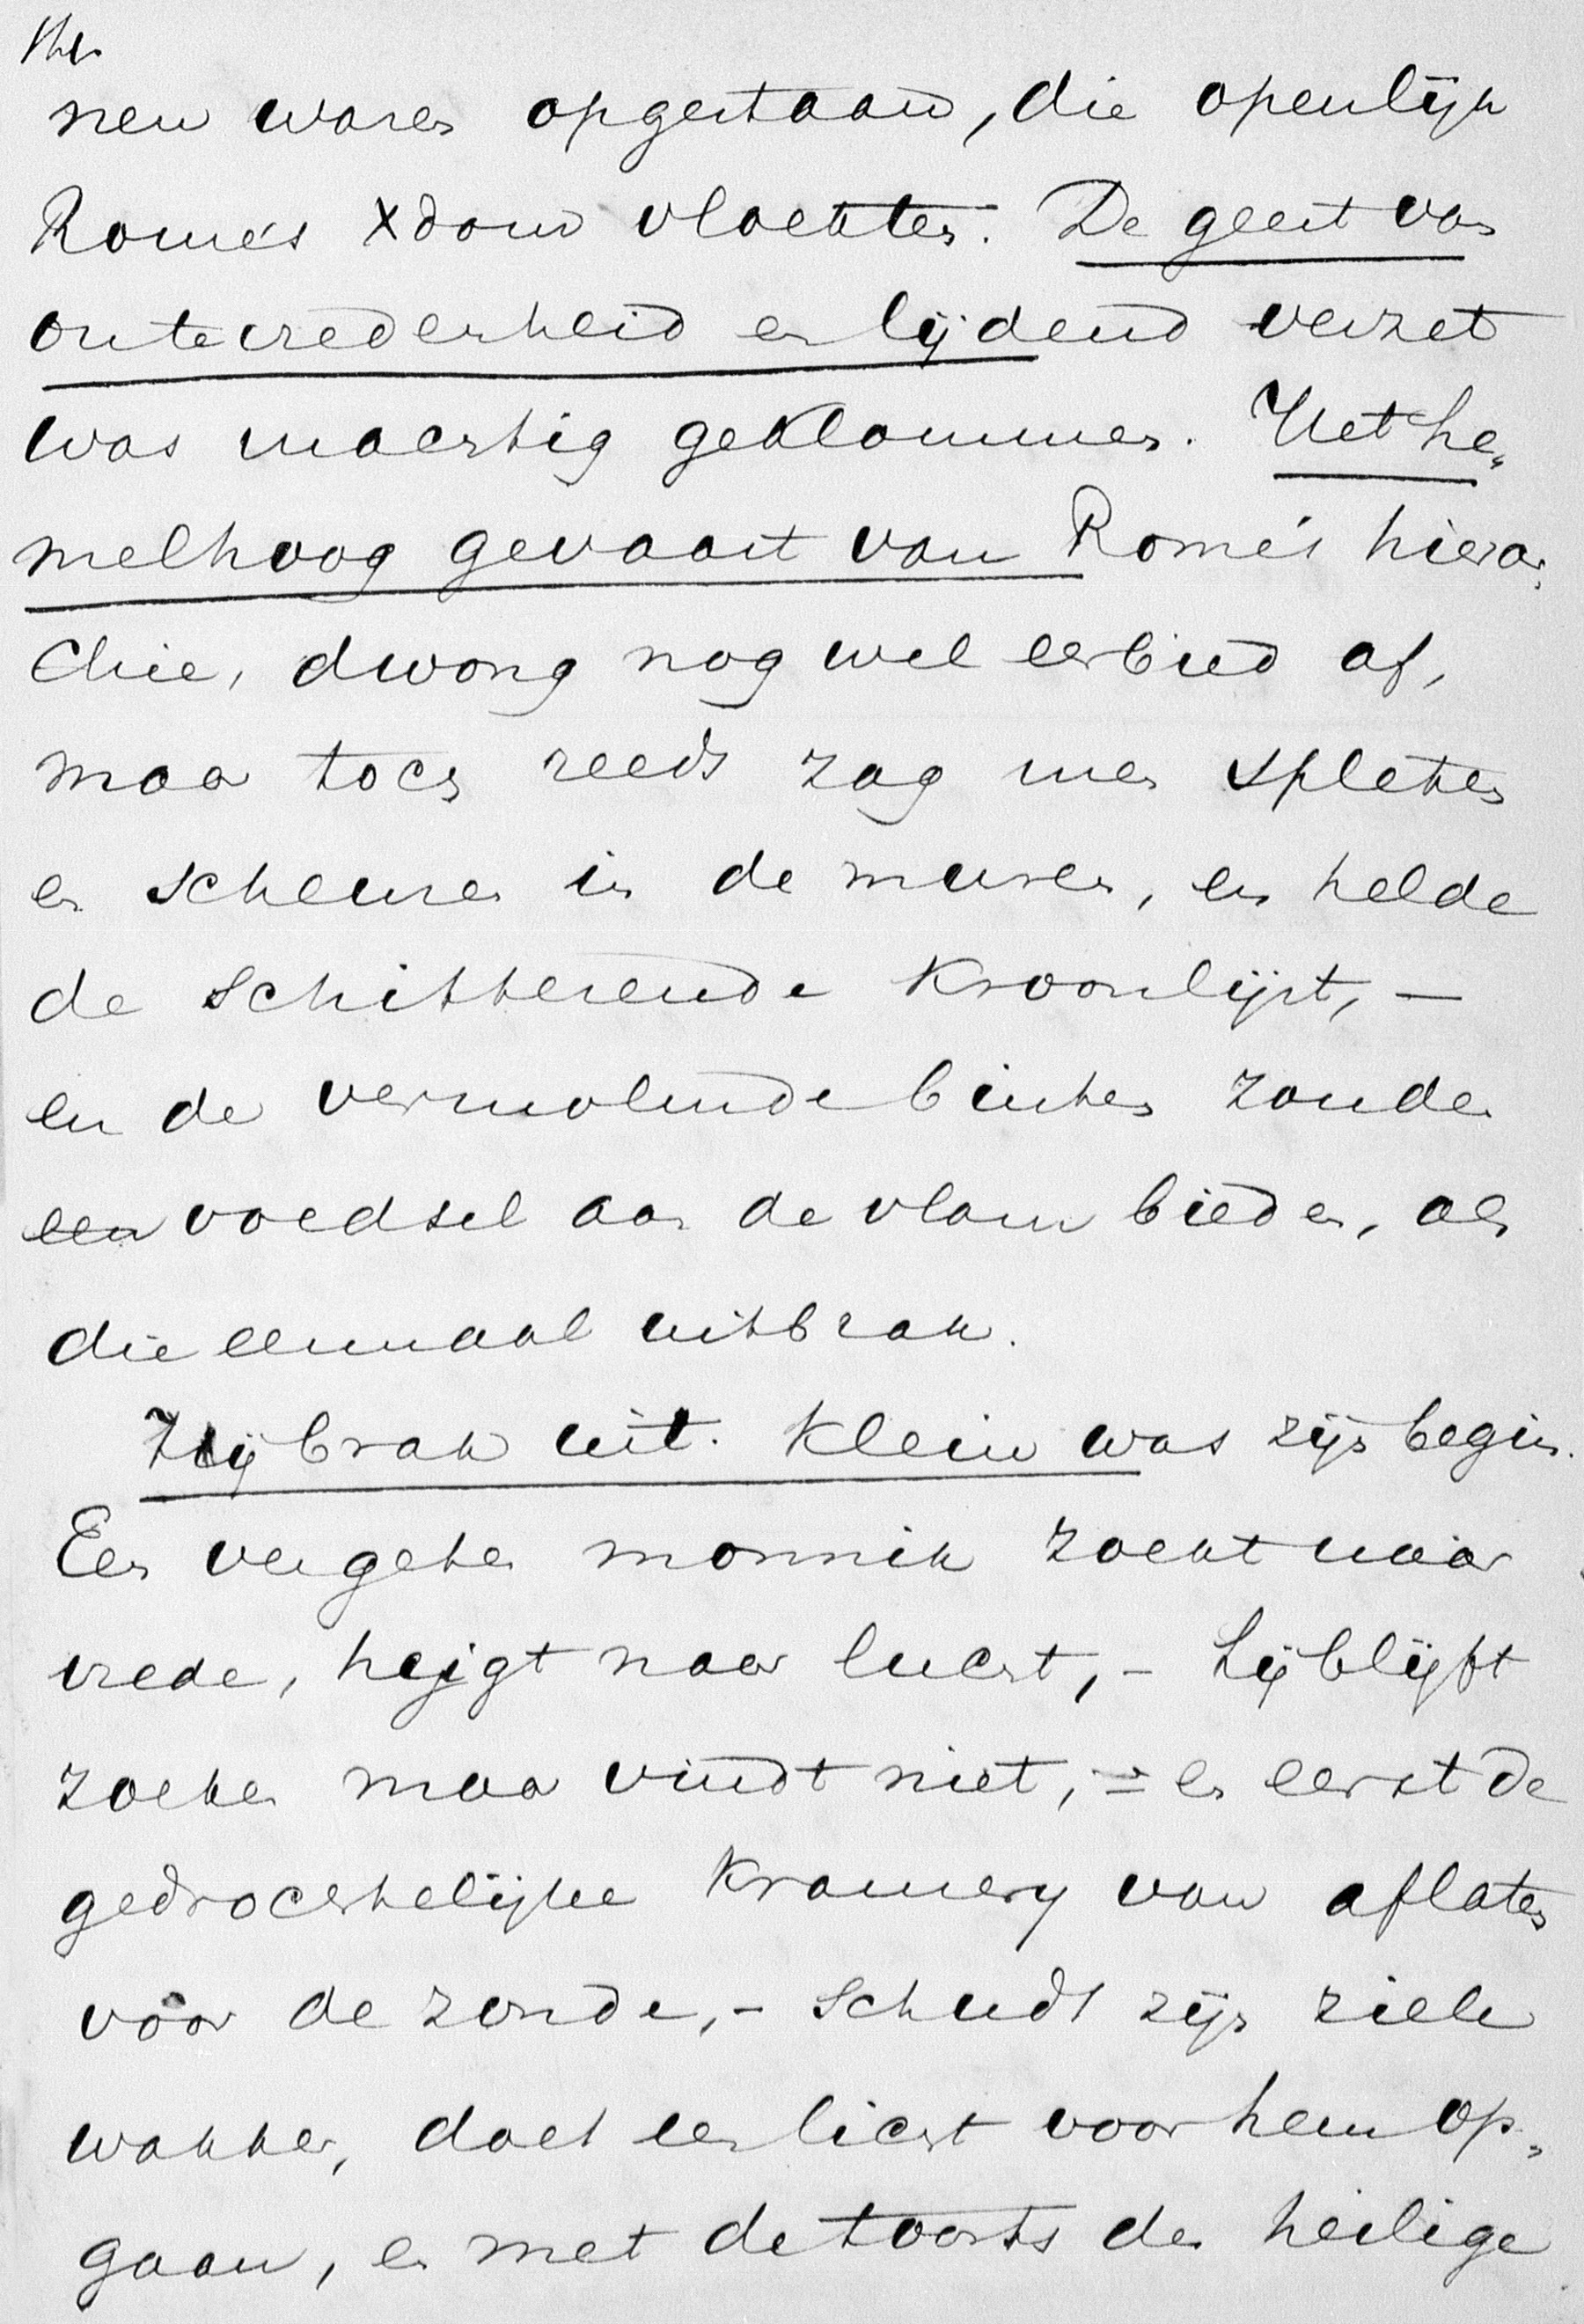 nen waren opgestaan, die openlijk
Rome's Xdom vloekten. De geest van
ontevredenheid en lijdend verzet
was machtig geklommen. Het he„
melhoog gevaart van Rome's hierar„
chie, dwong nog wel eerbied af,
maar toch reeds zag men spleten
en scheuren in de muren, en helde
de schitterende kroonlijst, —
en de vermolmde binten zouden
een voedsel aan de vlam bieden, als
die eenmaal uitbrak.
Zij brak uit. Klein was zijn begin.
Een vergeten monnik zoekt naar
vrede, hijgt naar lucht, - Hij blijft
zoeken maar vindt niet, = en eerst de
gedrochtelijke kramery van aflaten
voor de zonde, - schudt zijn ziele
wakker, doet een licht voor hem op„
gaan, en met de toorts der heilige